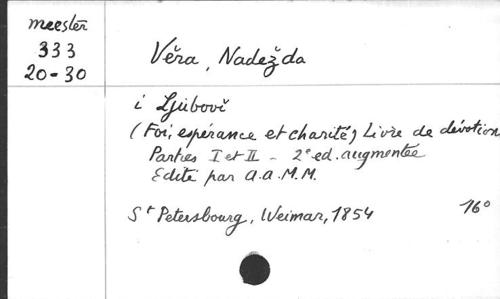 meester
333
20-30
Věra, Nadežda
i Ljubově
(Foi, espérance et charité) Livre de dévotion
Parties I et II - 2e ed. augmentée
Edité par a.a.M.M.
St Petersbourg, Weimar, 1854 16°